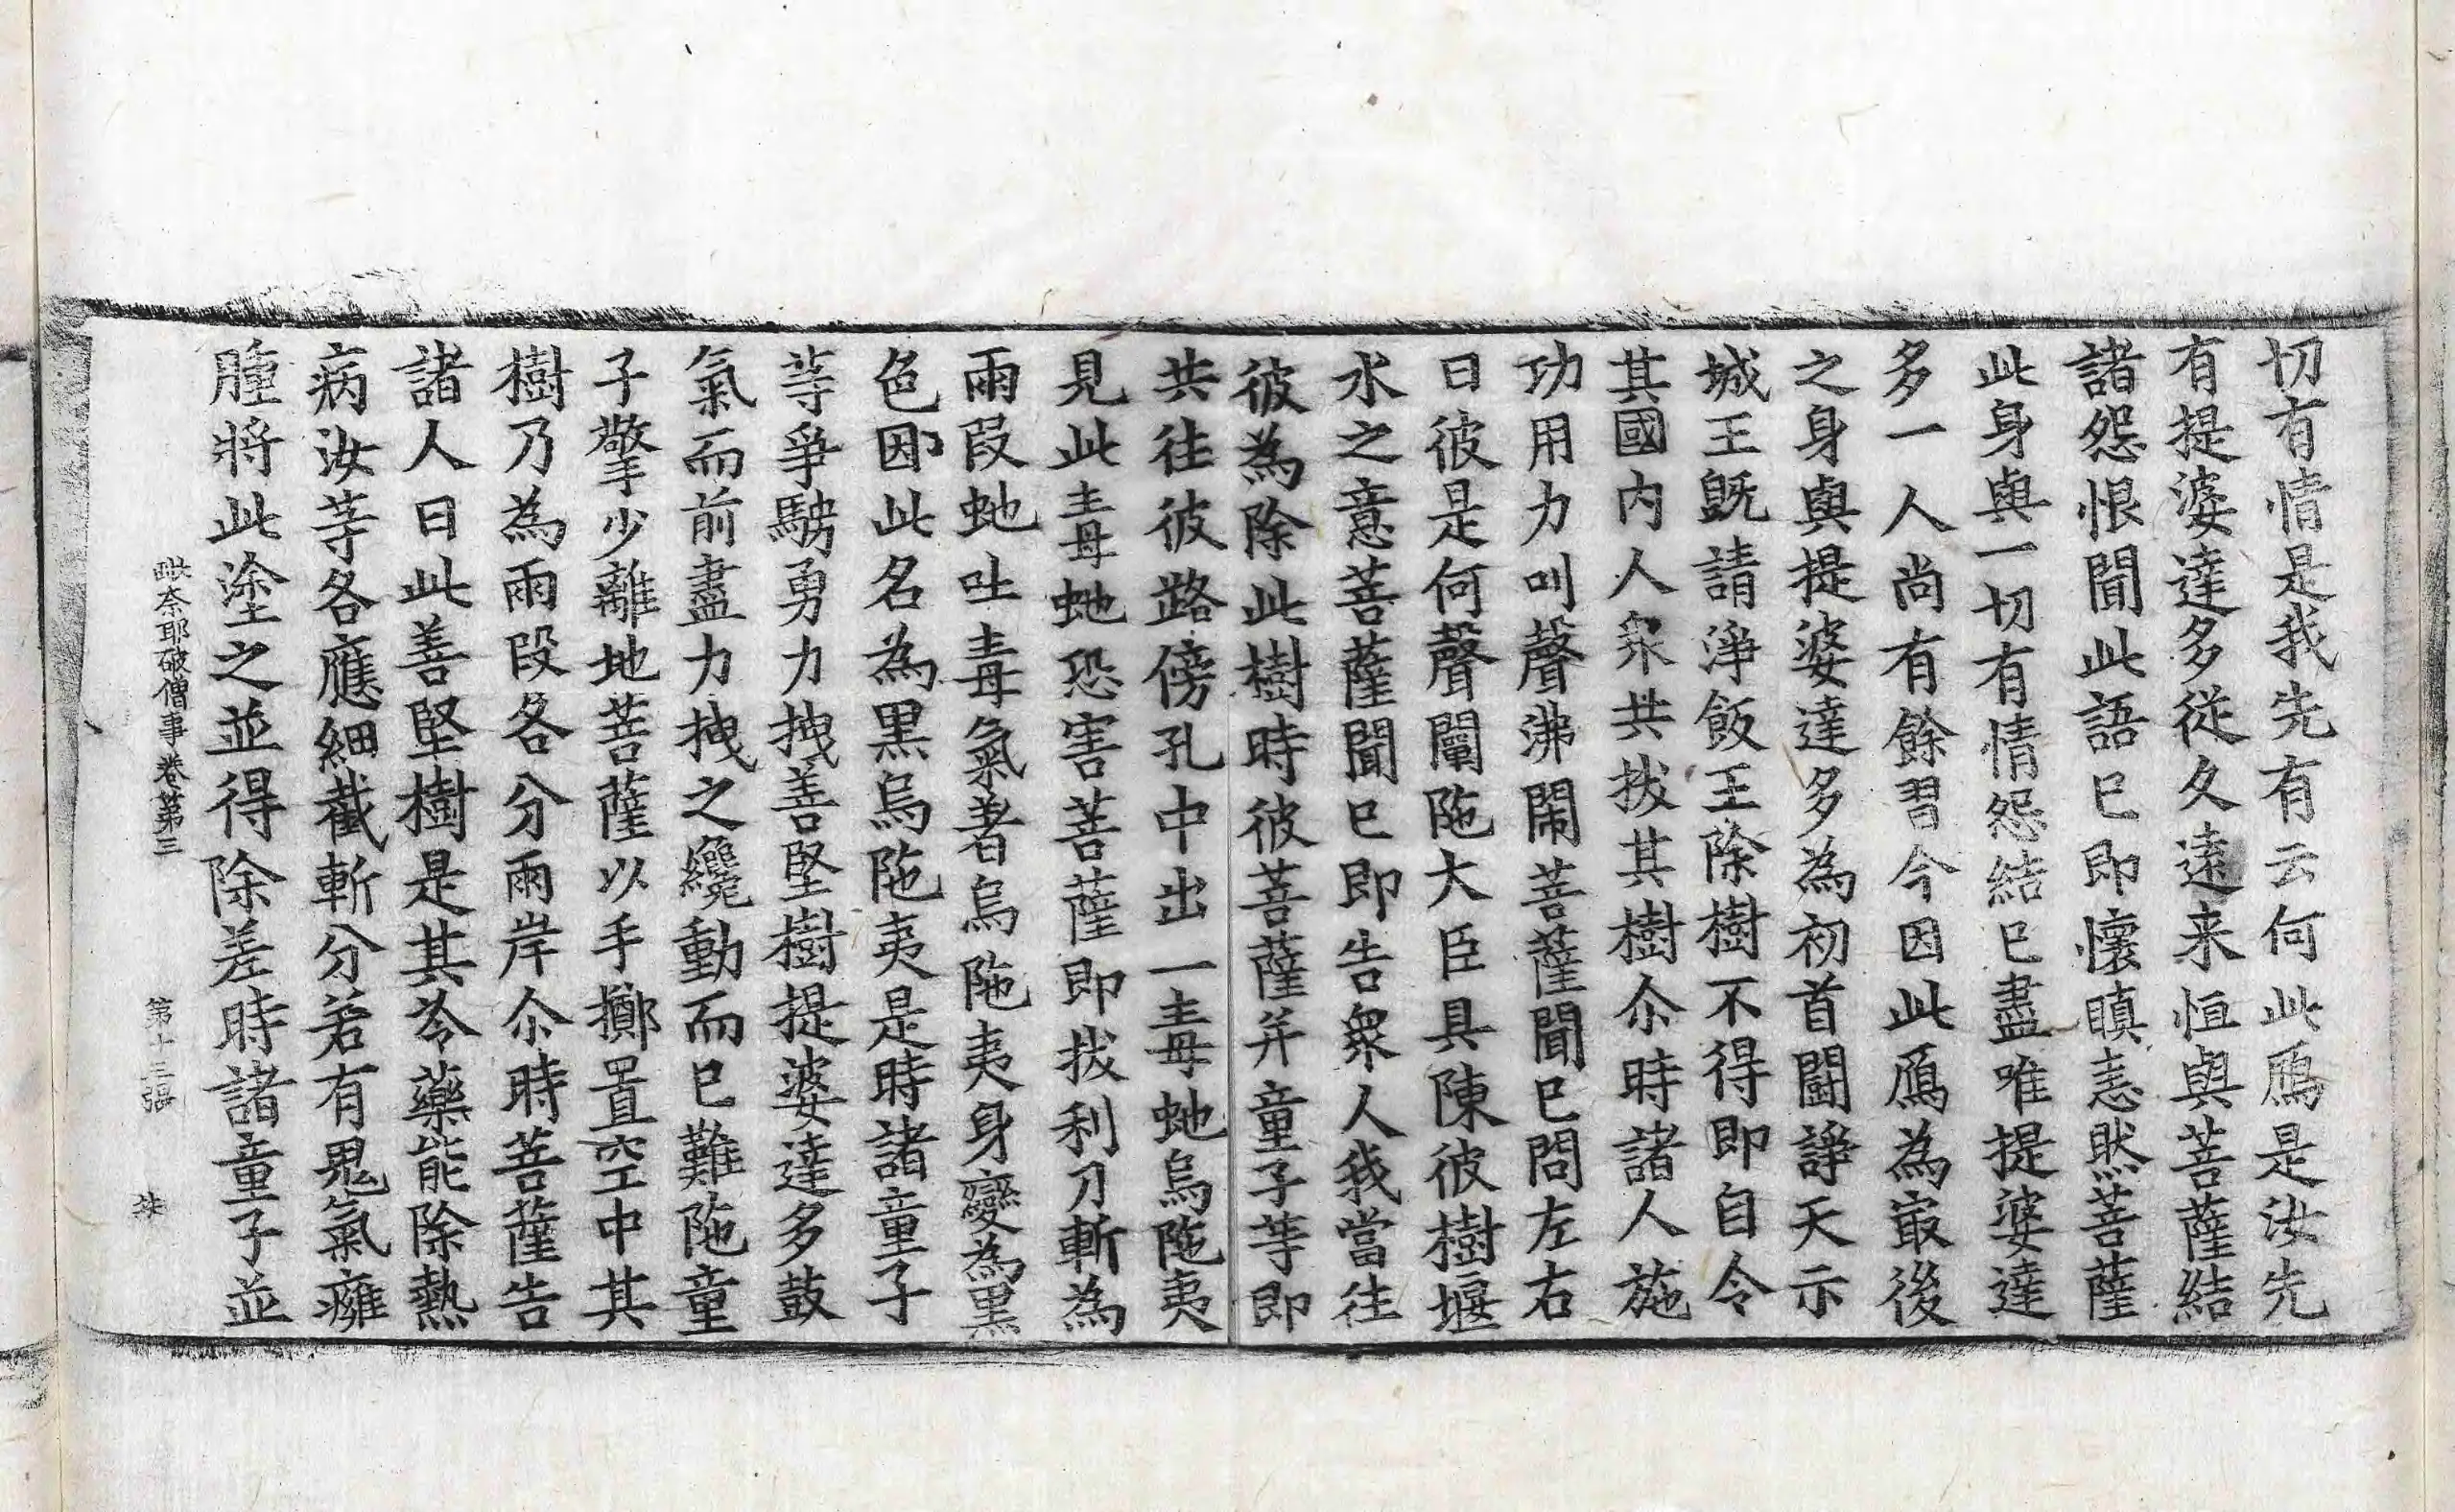 切有情是我先有云何此鴈是汝先
有提婆達多從久遠来恒與菩薩結
諸怨恨聞此語已即懷瞋恚然菩薩
此身與一切有情怨結已盡唯提婆達
多一人尚有餘習今因此鴈為㝡後
之身與提婆達多為初首鬪諍天示
城王旣請淨飯王除樹不得即自令
其國内人衆共拔其樹尒時諸人施
功用力叫聲沸鬧菩薩聞已問左右
曰彼是何聲闡陁大臣具陳彼樹堰
水之意菩薩聞已即告衆人我當往
彼為除此樹時彼菩薩并童子等即
共往彼路傍孔中出一毒虵烏陁夷
見此毒虵恐害菩薩即拔利刀斬為
兩段虵吐毒氣着烏陁夷身變為黒
色因此名為黒烏陁夷是時諸童子
等爭騁勇力拽善堅樹提婆達多鼓
氣而前盡力拽之纔動而已難陁童
子擎少離地菩薩以手擲置空中其
樹乃為兩段各分兩岸尒時菩薩告
諸人曰此善堅樹是其冷藥能除熱
病汝等各應細截斬分若有鬼氣癰
腫將此塗之並得除差時諸童子並
毗奈耶破僧事卷第三　第十三張